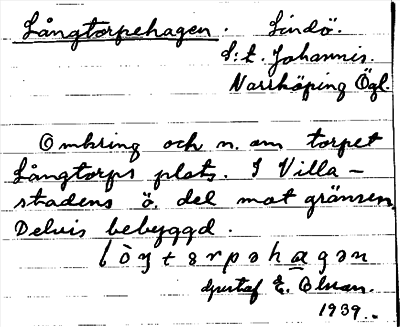 Långtorpehagen. Lindö.
S:t. Johannis.
Norrköping Ögl.
Omkring och n. om torpet
Långtorps plats. I Villa-
stadens ö. del mot gränsen.
Delvis bebyggd.
Gustaf E. Olsson.
1939.